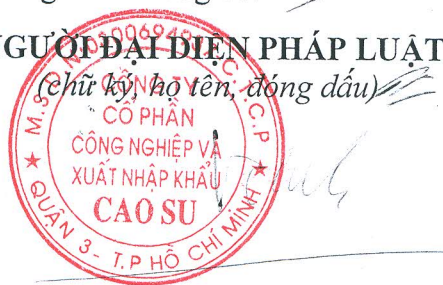 NGƯỜI ĐẠI DIỆN PHÁP LUẬT
(chữ ký, họ tên, đóng dấu)
CÔNG TY
CỔ PHẦN
CÔNG NGHIỆP VÀ
XUẤT NHẬP KHẨU
CAO SU
QUẬN 3 - T.P HỒ CHÍ MINH